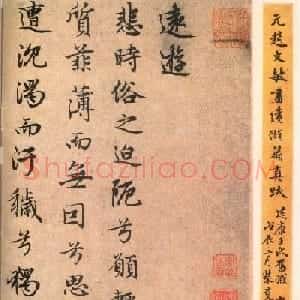 元趙文敏書遠游篇真跡
遠遊
悲時俗之迫阨兮願
質菲薄而無因兮
遭沈濁而汙穢兮獨
Shufaziliao.com